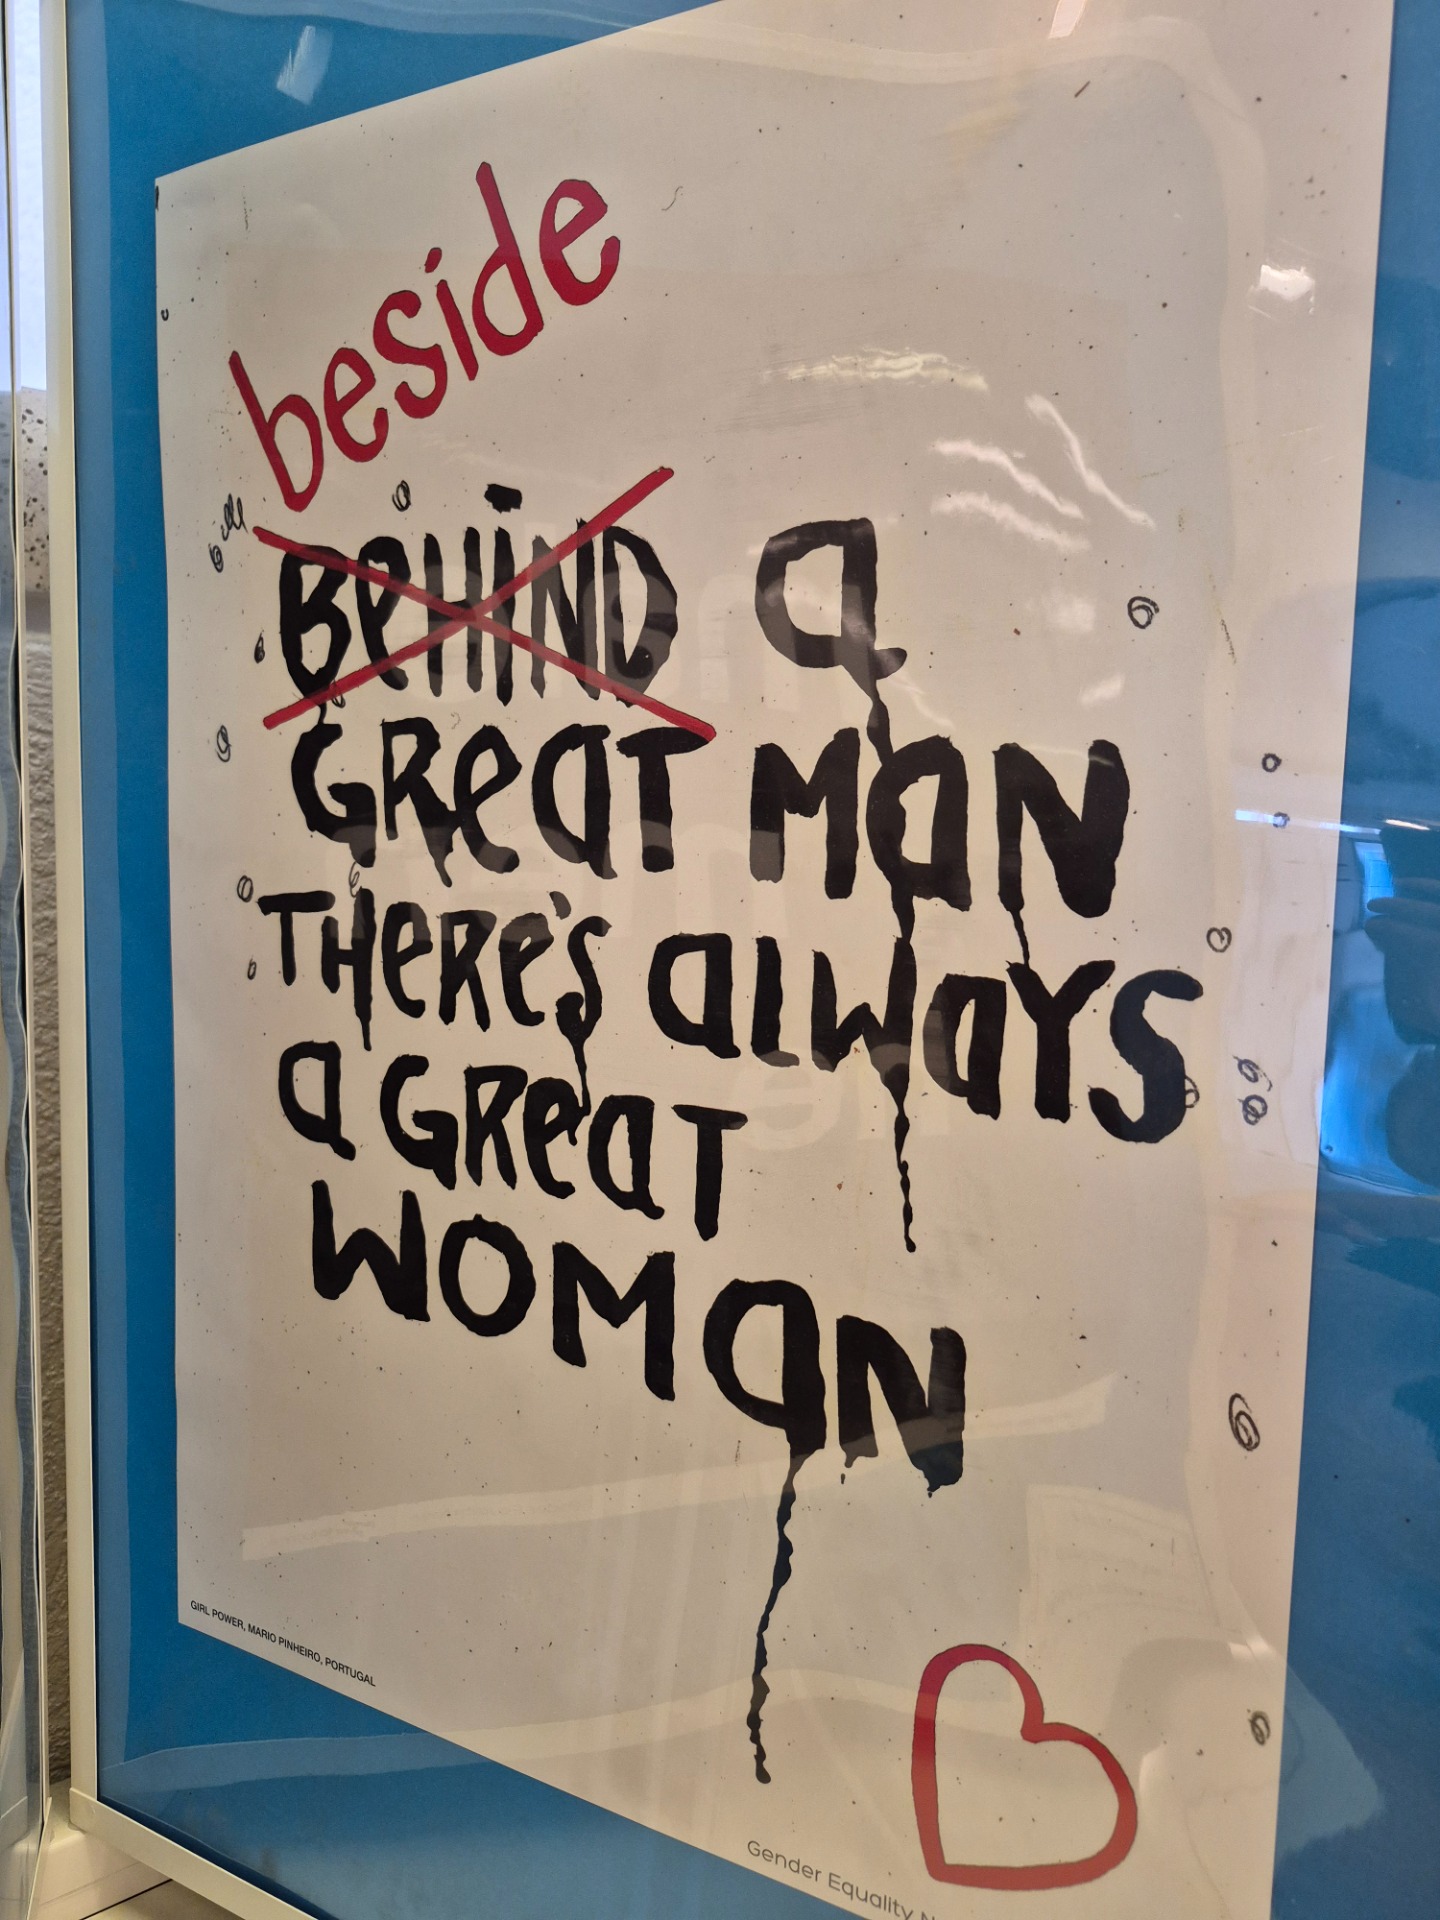 beside
BeHiND a
GReaT MaN
THeRe's aLWaYS
a GReaT
WOMaN
GIRL POWER, MARIO PINHEIRO, PORTUGAL
Gender Equality